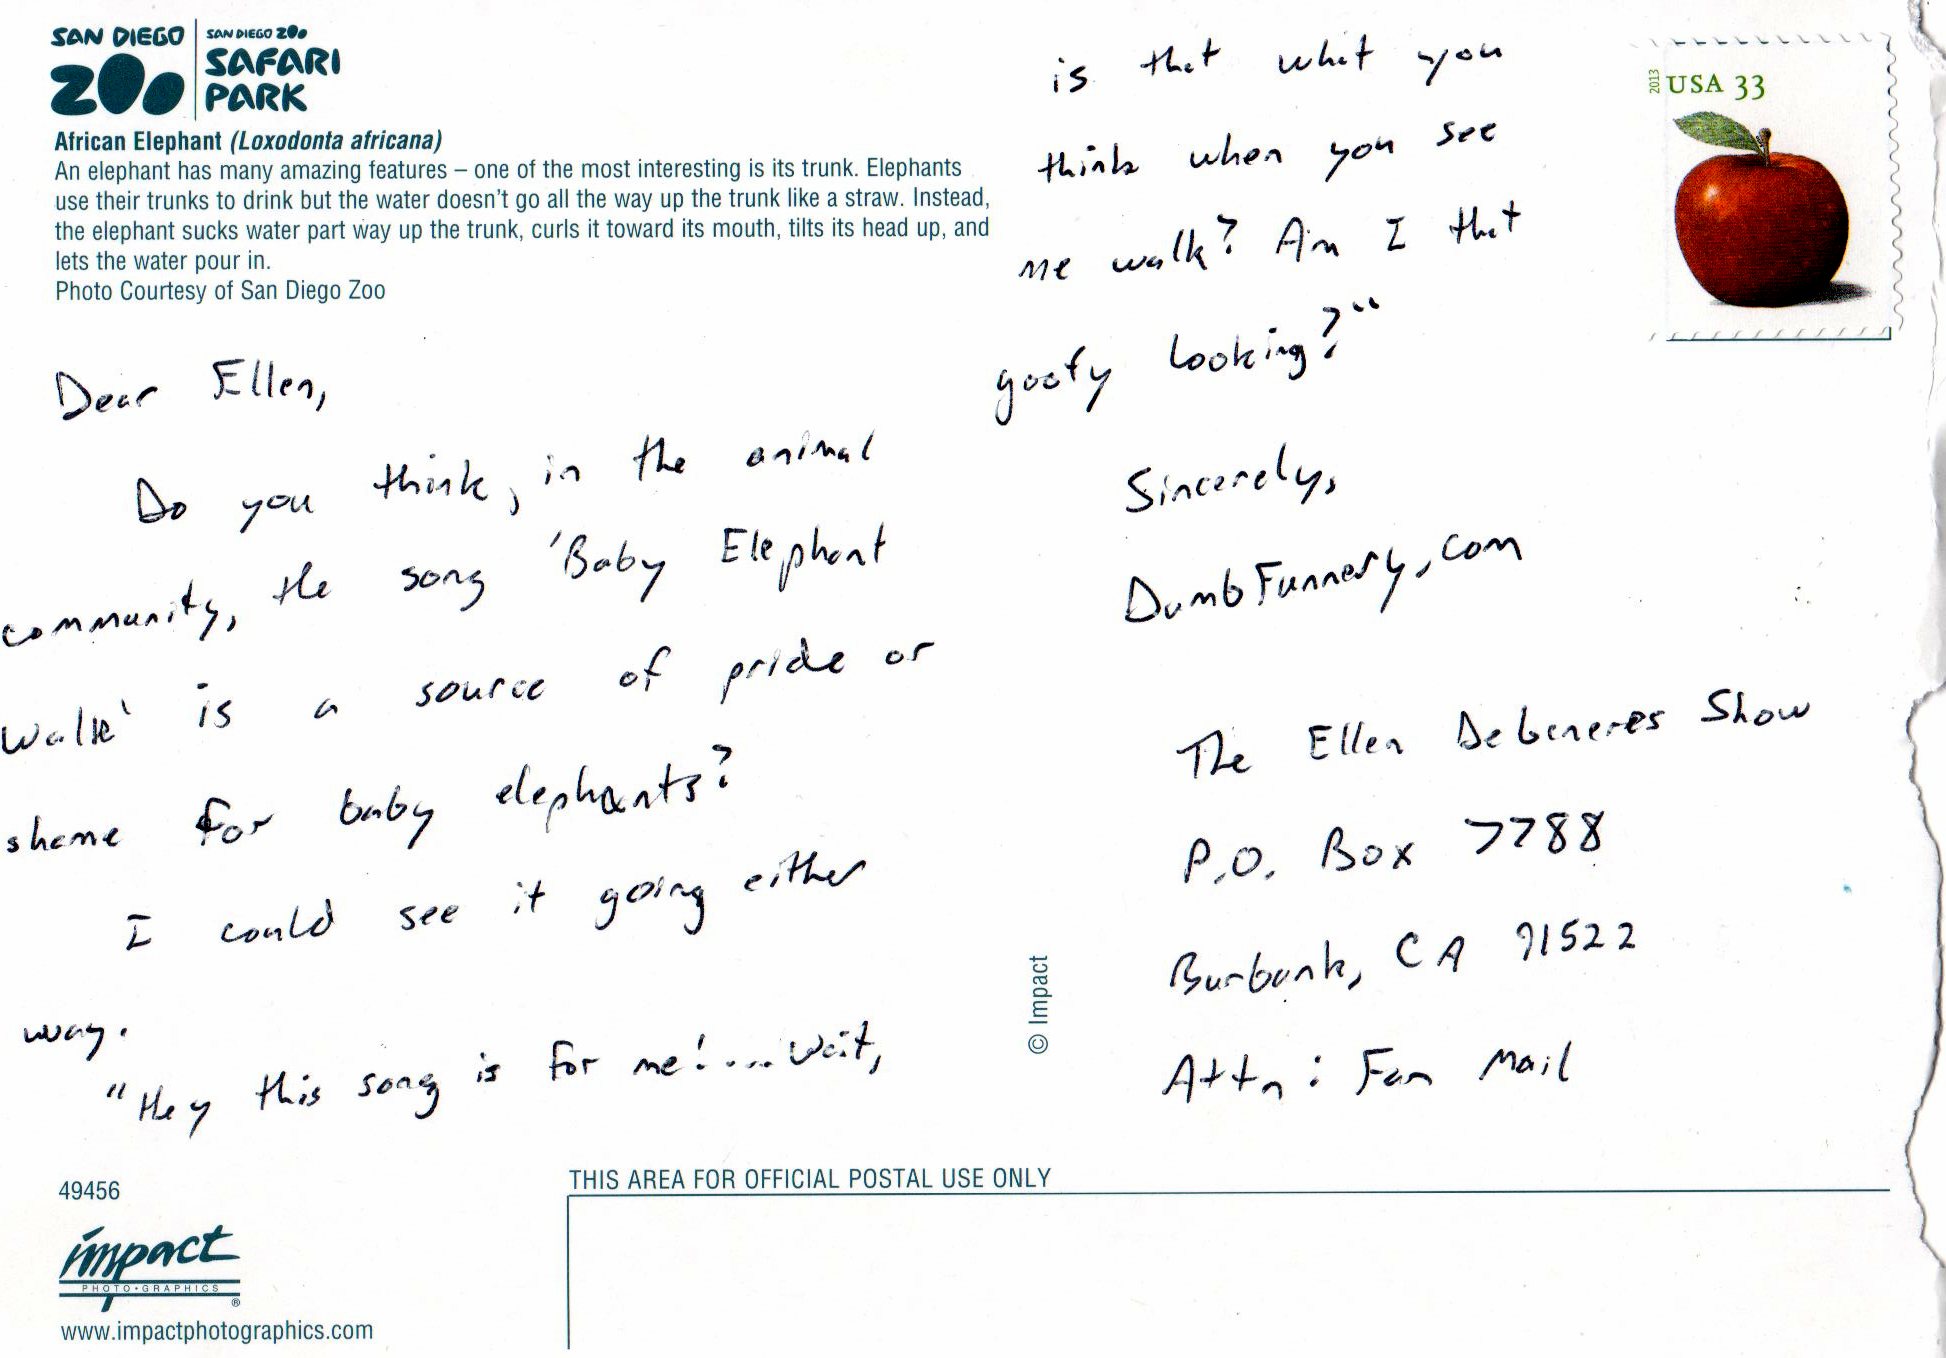 SAN DIEGO ZOO
SAN DIEGO ZOO SAFARI PARK
African Elephant (Loxodonta africana)
An elephant has many amazing features – one of the most interesting is its trunk. Elephants
use their trunks to drink but the water doesn't go all the way up the trunk like a straw. Instead,
the elephant sucks water part way up the trunk, curls it toward its mouth, tilts its head up, and
lets the water pour in.
Photo Courtesy of San Diego Zoo
Dear Ellen,
Do you think, in the animal
community, the song 'Baby Elephant
Walk' is a source of pride or
shame for baby elephants?
I could see it going either
way.
"Hey this song is for me!...Wait,
is that what you
think when you see
me walk? Am I that
goofy looking?"
Sincerely,
DumbFunnery.com
2013 USA 33
The Ellen Debeneres Show
P.O. Box 7788
Burbank, CA 91522
Attn: Fan Mail
© Impact
THIS AREA FOR OFFICIAL POSTAL USE ONLY
49456
impact
PHOTO•GRAPHICS
®
www.impactphotographics.com